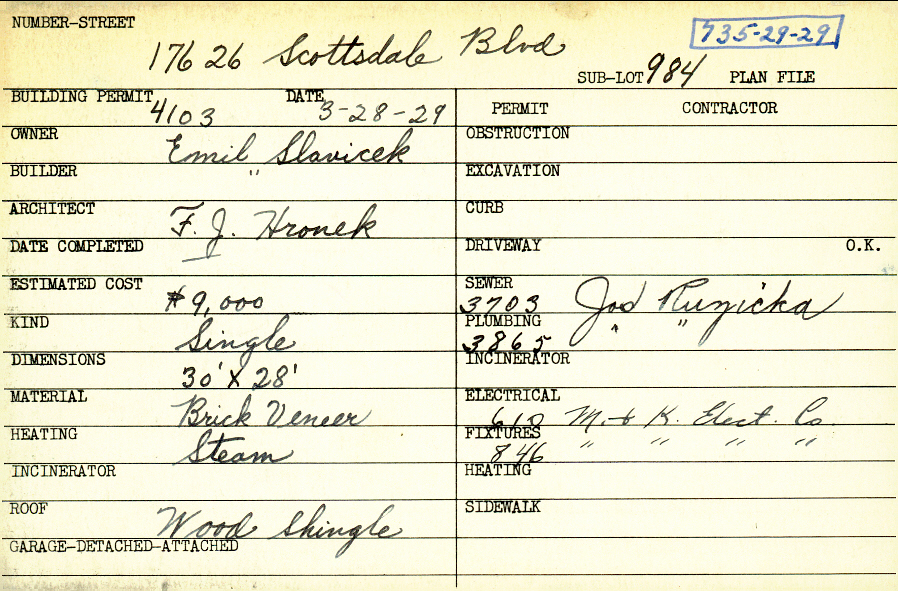 NUMBER-STREET
735-29-29
17626 Scottsdale Blvd
SUB-LOT 984 PLAN FILE
BUILDING PERMIT 4103 DATE 3-28-29
PERMIT CONTRACTOR
OWNER Emil Slavicek
OBSTRUCTION
BUILDER "
EXCAVATION
ARCHITECT F. J. Hronek
CURB
DATE COMPLETED —
DRIVEWAY O.K.
ESTIMATED COST $9,000
SEWER 3703 Jos Ruzicka
KIND Single
PLUMBING 3865 " "
DIMENSIONS 30' X 28'
INCINERATOR
MATERIAL Brick Veneer
ELECTRICAL 610 M. & K. Elect. Co.
HEATING Steam
FIXTURES 846 " " " "
INCINERATOR
HEATING
ROOF Wood Shingle
SIDEWALK
GARAGE-DETACHED-ATTACHED